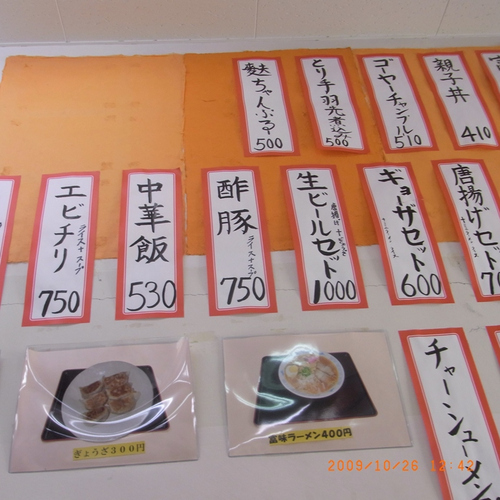 麩ちゃんぷるー
500
とり手羽先煮込み
500
ゴーヤーチャンプル
510
親子丼
410
エビチリ
ライス+スープ
750
中華飯
530
酢豚
ライス+スープ
750
生ビールセット
1000
ギョーザセット
600
唐揚げセット
チャーンユーメン
ぎょうざ300円
富味ラーメン400円
2009/10/26 12:42